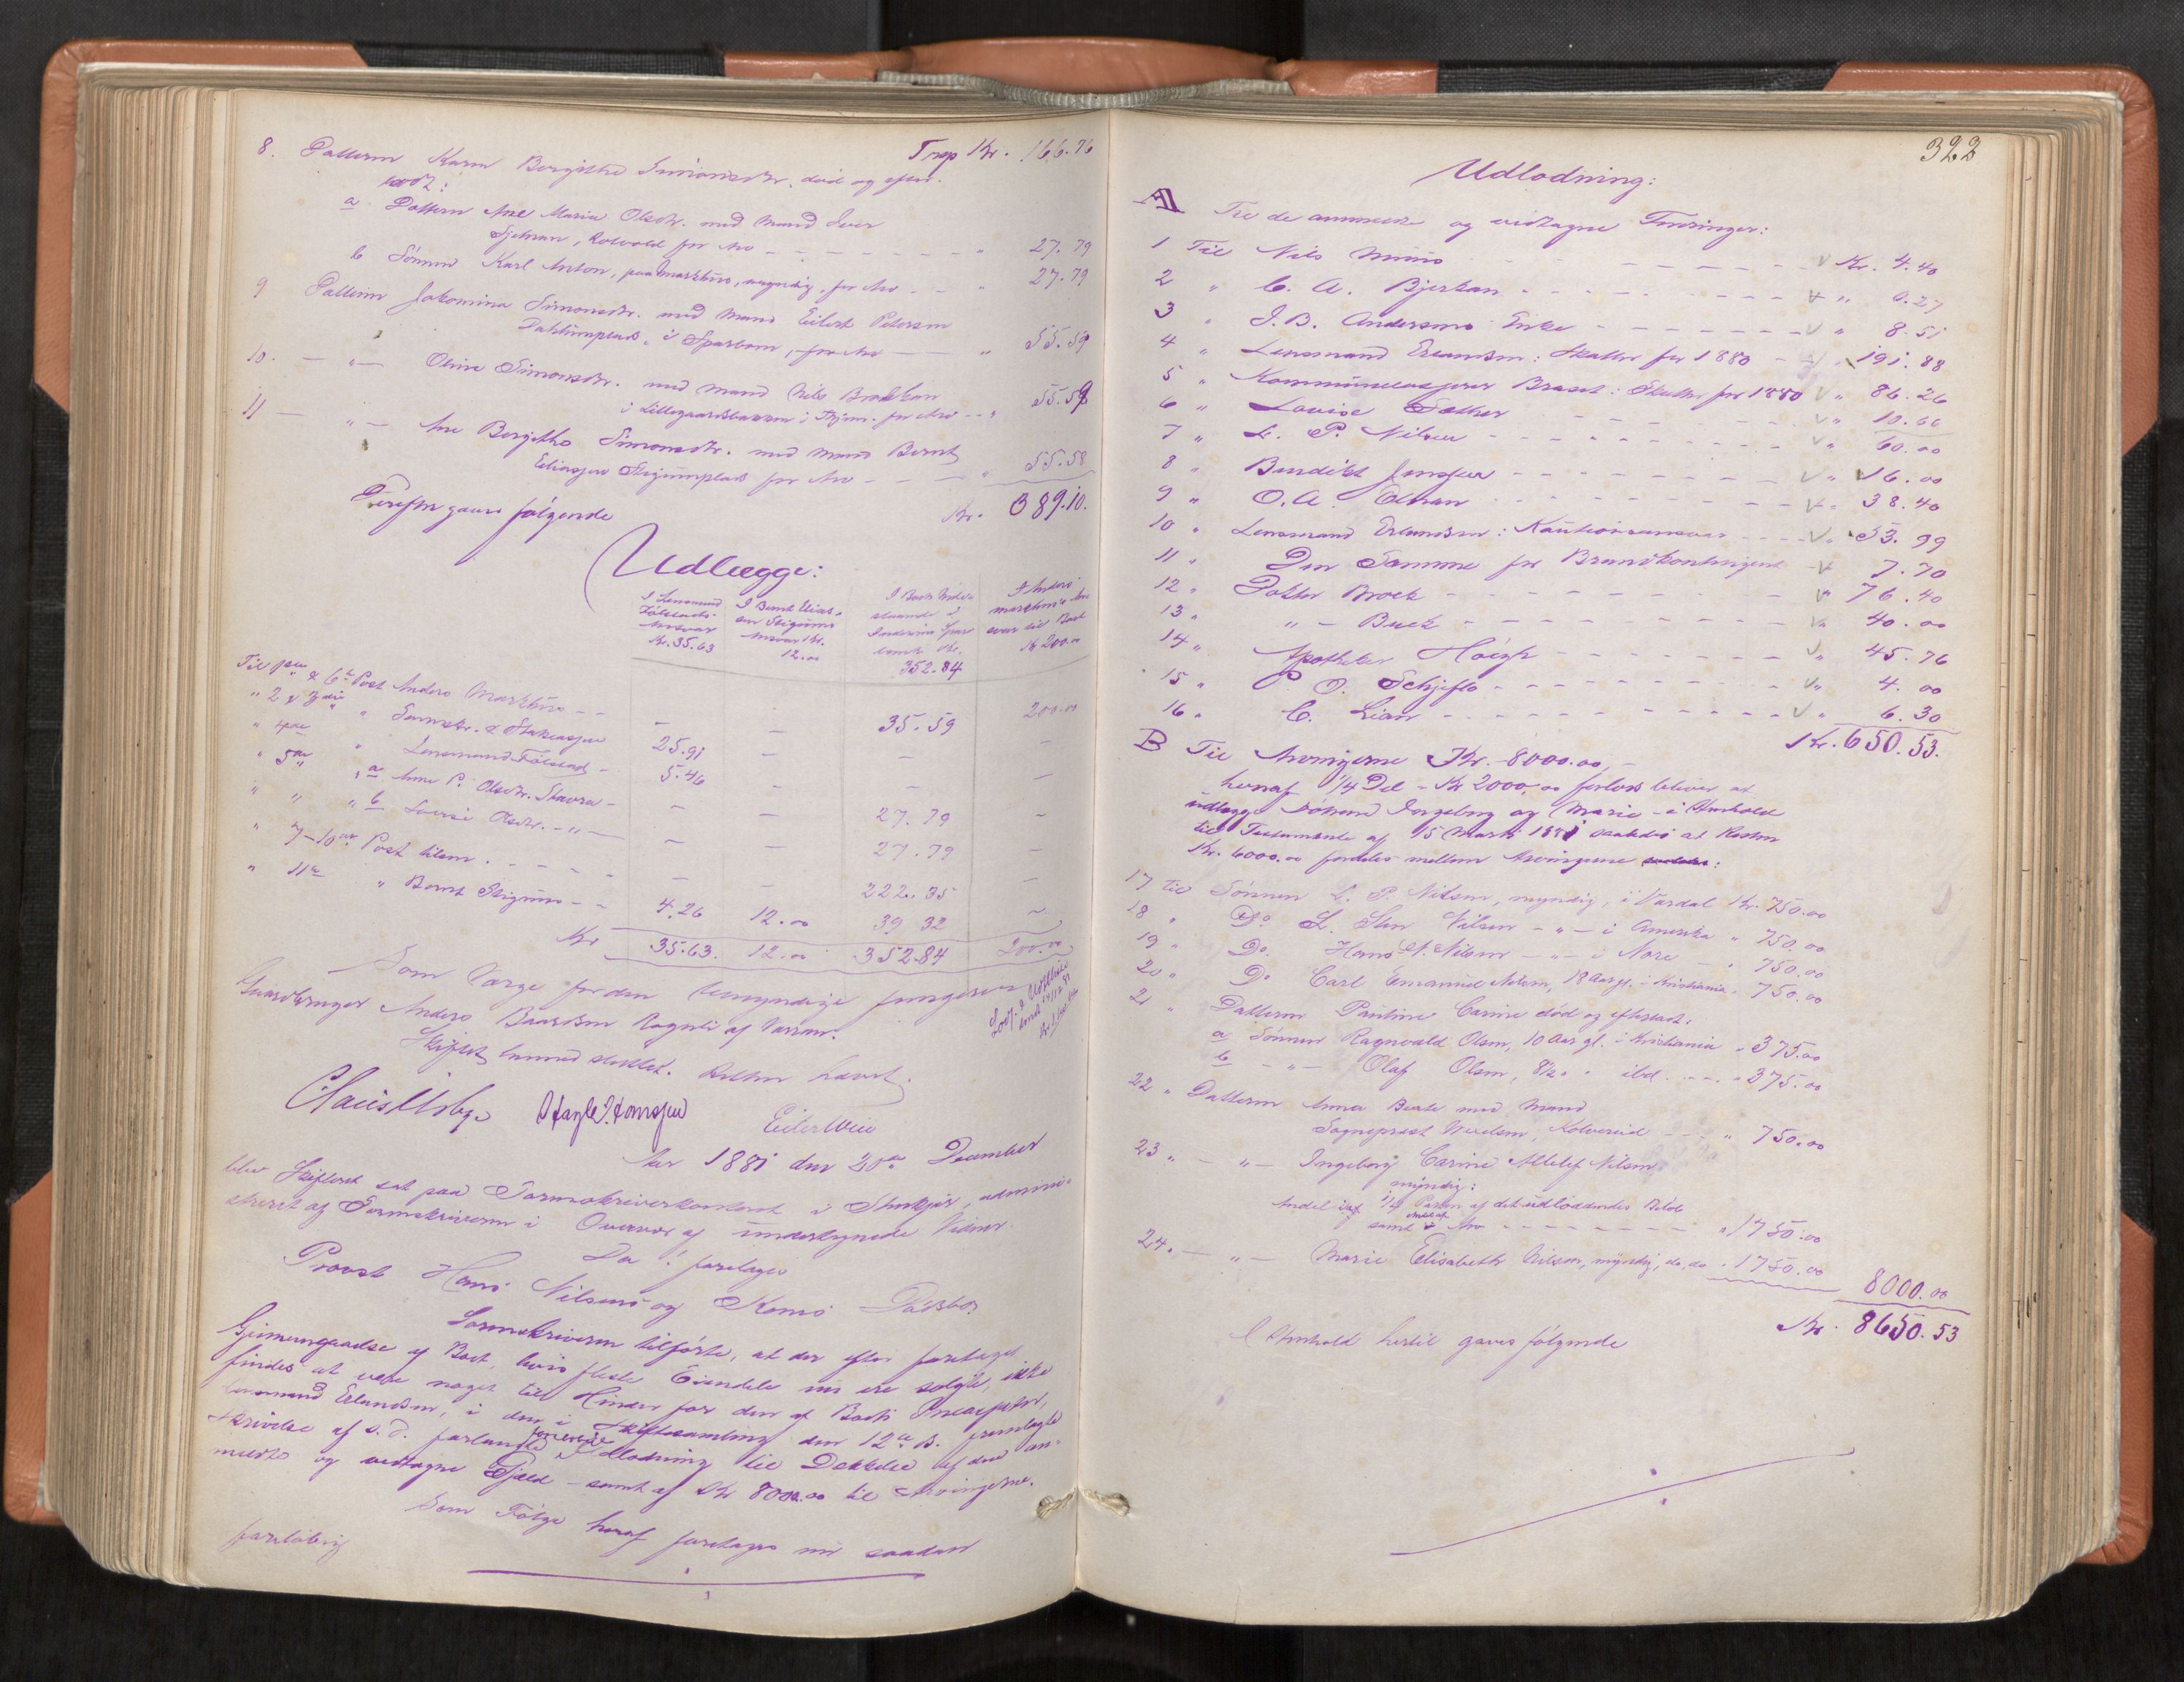 Trsp Kr. 166.76
8. Datteren Karen Bergithe Simonsdtr. død og efter-
ladt:
a Datteren Ane Maria Olsdtr. med Mand Iver
Sjelman, Kolvold for Arv - - - - - " 27.79
b Sønnen Karl Anton, paa Markhus, umyndig, for Arv - - " 27.79
9 Datteren Jakomina Simonsdtr. med Mand Eilert Petersen
Dahlumplads, i Sparbuen, for Arv - - " 55.59
10. - " - Oline Simonsdtr. med Mand Nils Brækkan
i Lillegaardsbakken i Thjem. for Arv - - " 55.59
11 - " - Ane Bergitha Simonsdtr. med Mand Bernt
Eliassen Skjgumplads for Arv - - - " 55.58
Kr. 389.10.
Derefter gaves følgende
Udlægge:
I Lensmand Følstads Ansvar Kr. 35.63
I Bernt Eliassen Stigums Ansvar Kr. 12.00
I Bost Indestaaende i Inderøens Sparebank Kr. 352.84
I Anders Markhus's Ansvar til Boet Kr 200.00
Til 1ste & 6te Post Anders Markhus - - — — 35.59 200.00
" 2 & 3die " Sermskr. & 25.91 — — —
" 4de " Lensmand Følstad - 5.46 — — —
" 5te " a Ane P. Olsdtr. Stavru - — — 27.79 —
" " " b Lovise Olsdtr. - " - — — 27.79 —
" 7-10de Post tilsm. - - - — — 222.35 —
" 11te " Bernt Stigum - - 4.26 12.00 39 32 —
Kr 35.63. 12.00 352.84 200.00
Som Værge for den umyndige fungerer
Gaardbruger Anders Baardsen Ragnli af Værran.
Skiftet hermed sluttet. Retten hævet.
Claus Urbye Eiler Wiu
Aar 1881 den 20de December
blev Skifteret sat paa Sorenskriverkontoret i Stenkjær, admini-
streret af Sorenskriveren i Overvær af undertegnede Vidner
Da foretages
Provst Hans Nilsens og Kones Dødsbo.
Sorenskriveren tilførte, at der efter foretaget
Gjennemgaaelse af Boet, hvis fleste Eiendele nu ere solgte, ikke
findes at være noget til Hinder for den af Boets Incassator,
Lensmand Erlandsen, i den i Skiftesamling den 12te d. fremlagte
Skrivelse af s. D. forlangte foreløbige Udlodning til Dækkelse af den an-
meldte og vedtagne Gjæld - samt af Kr 8000.00 til Arvingerne.
Som Følge heraf foretages nu saadan
foreløbig
322
Udlodning:
A Til de anmeldte og vedtagne Fordringer:
1 Til Nils Minns - - - - - Kr. 4.40
2 " C. A. Bjerkan - - - - - " 0.27
3 " J. B. Andersens Enke - - - - " 8.51
4 " Lensmand Erlandsen: Skatter for 1880 - - " 191.88
5 " Kommunekasserer Braset: Skatter for 1880 " 86.26
6 " Lovise Sæther - - - " 10.66
7 " L. P. Nilsen - - - - - " 60.00
8 " Benedikt Jenssen - - - - " 16.00
9 " O. A. Olman - - - - " 38.40
10 " Lensmand Erlandsen: Kautionsansvar - - - " 53.99
11 " Den Samme for Brandkontingent - " 7.70
12 " Doktor Brock - - - - - " 76.40
13 " " - Buck - - - - - " 40.00
14 " Apotheker Høeg - - - - " 45.76
15 " P. O. Schjeflo - - - - " 4.00
16 " C. Lian - - - - - " 6.30
Kr. 650.53.
B Til Arvingerne Kr. 8000.00, -
heraf 1/4 Del - Kr 2000.00 forlods bliver at
udlægge Døtrene Ingeborg og Marie - i Henhold
til Testamente af 15 Marts 1881 saaledes at Resten
Kr. 6000.00 fordeles mellem Arvingerne:
17 til Sønnen L. P. Nilsen, myndig, i Værdal Kr. 750.00
18 " Do. S. Sten Nilsen - " - i Amerika " 750.00
19 " Do. Hans N. Nilsen - " - i Nore - " 750.00
20 " Do Carl Emanuel Nilsen, 18 Aar gl. i Kristiania " 750.00
21 " Datteren Pauline Carine død og efterladt:
a Sønnen Ragnvald Olsen, 10 Aar gl. i Kristiania " 375.00
b - " - Olaf Olsen, 8½ " " ibd. - - - " 375.00
22 " Datteren Anna Beate med Mand
Sogneprest Wexelsen, Kolvereid - - - " 750.00
23 " - " - Ingeborg Carine Nilsen
myndig:
Andel i 1/4 Parten af det udloddendes Beløb
samt Arv - - - - - " 1750.00
24 " - " - Marie Elisabeth Nilsen, myndig, do. do " 1750.00
8000.00
Kr. 8650.53
I Henhold hertil gaves følgende